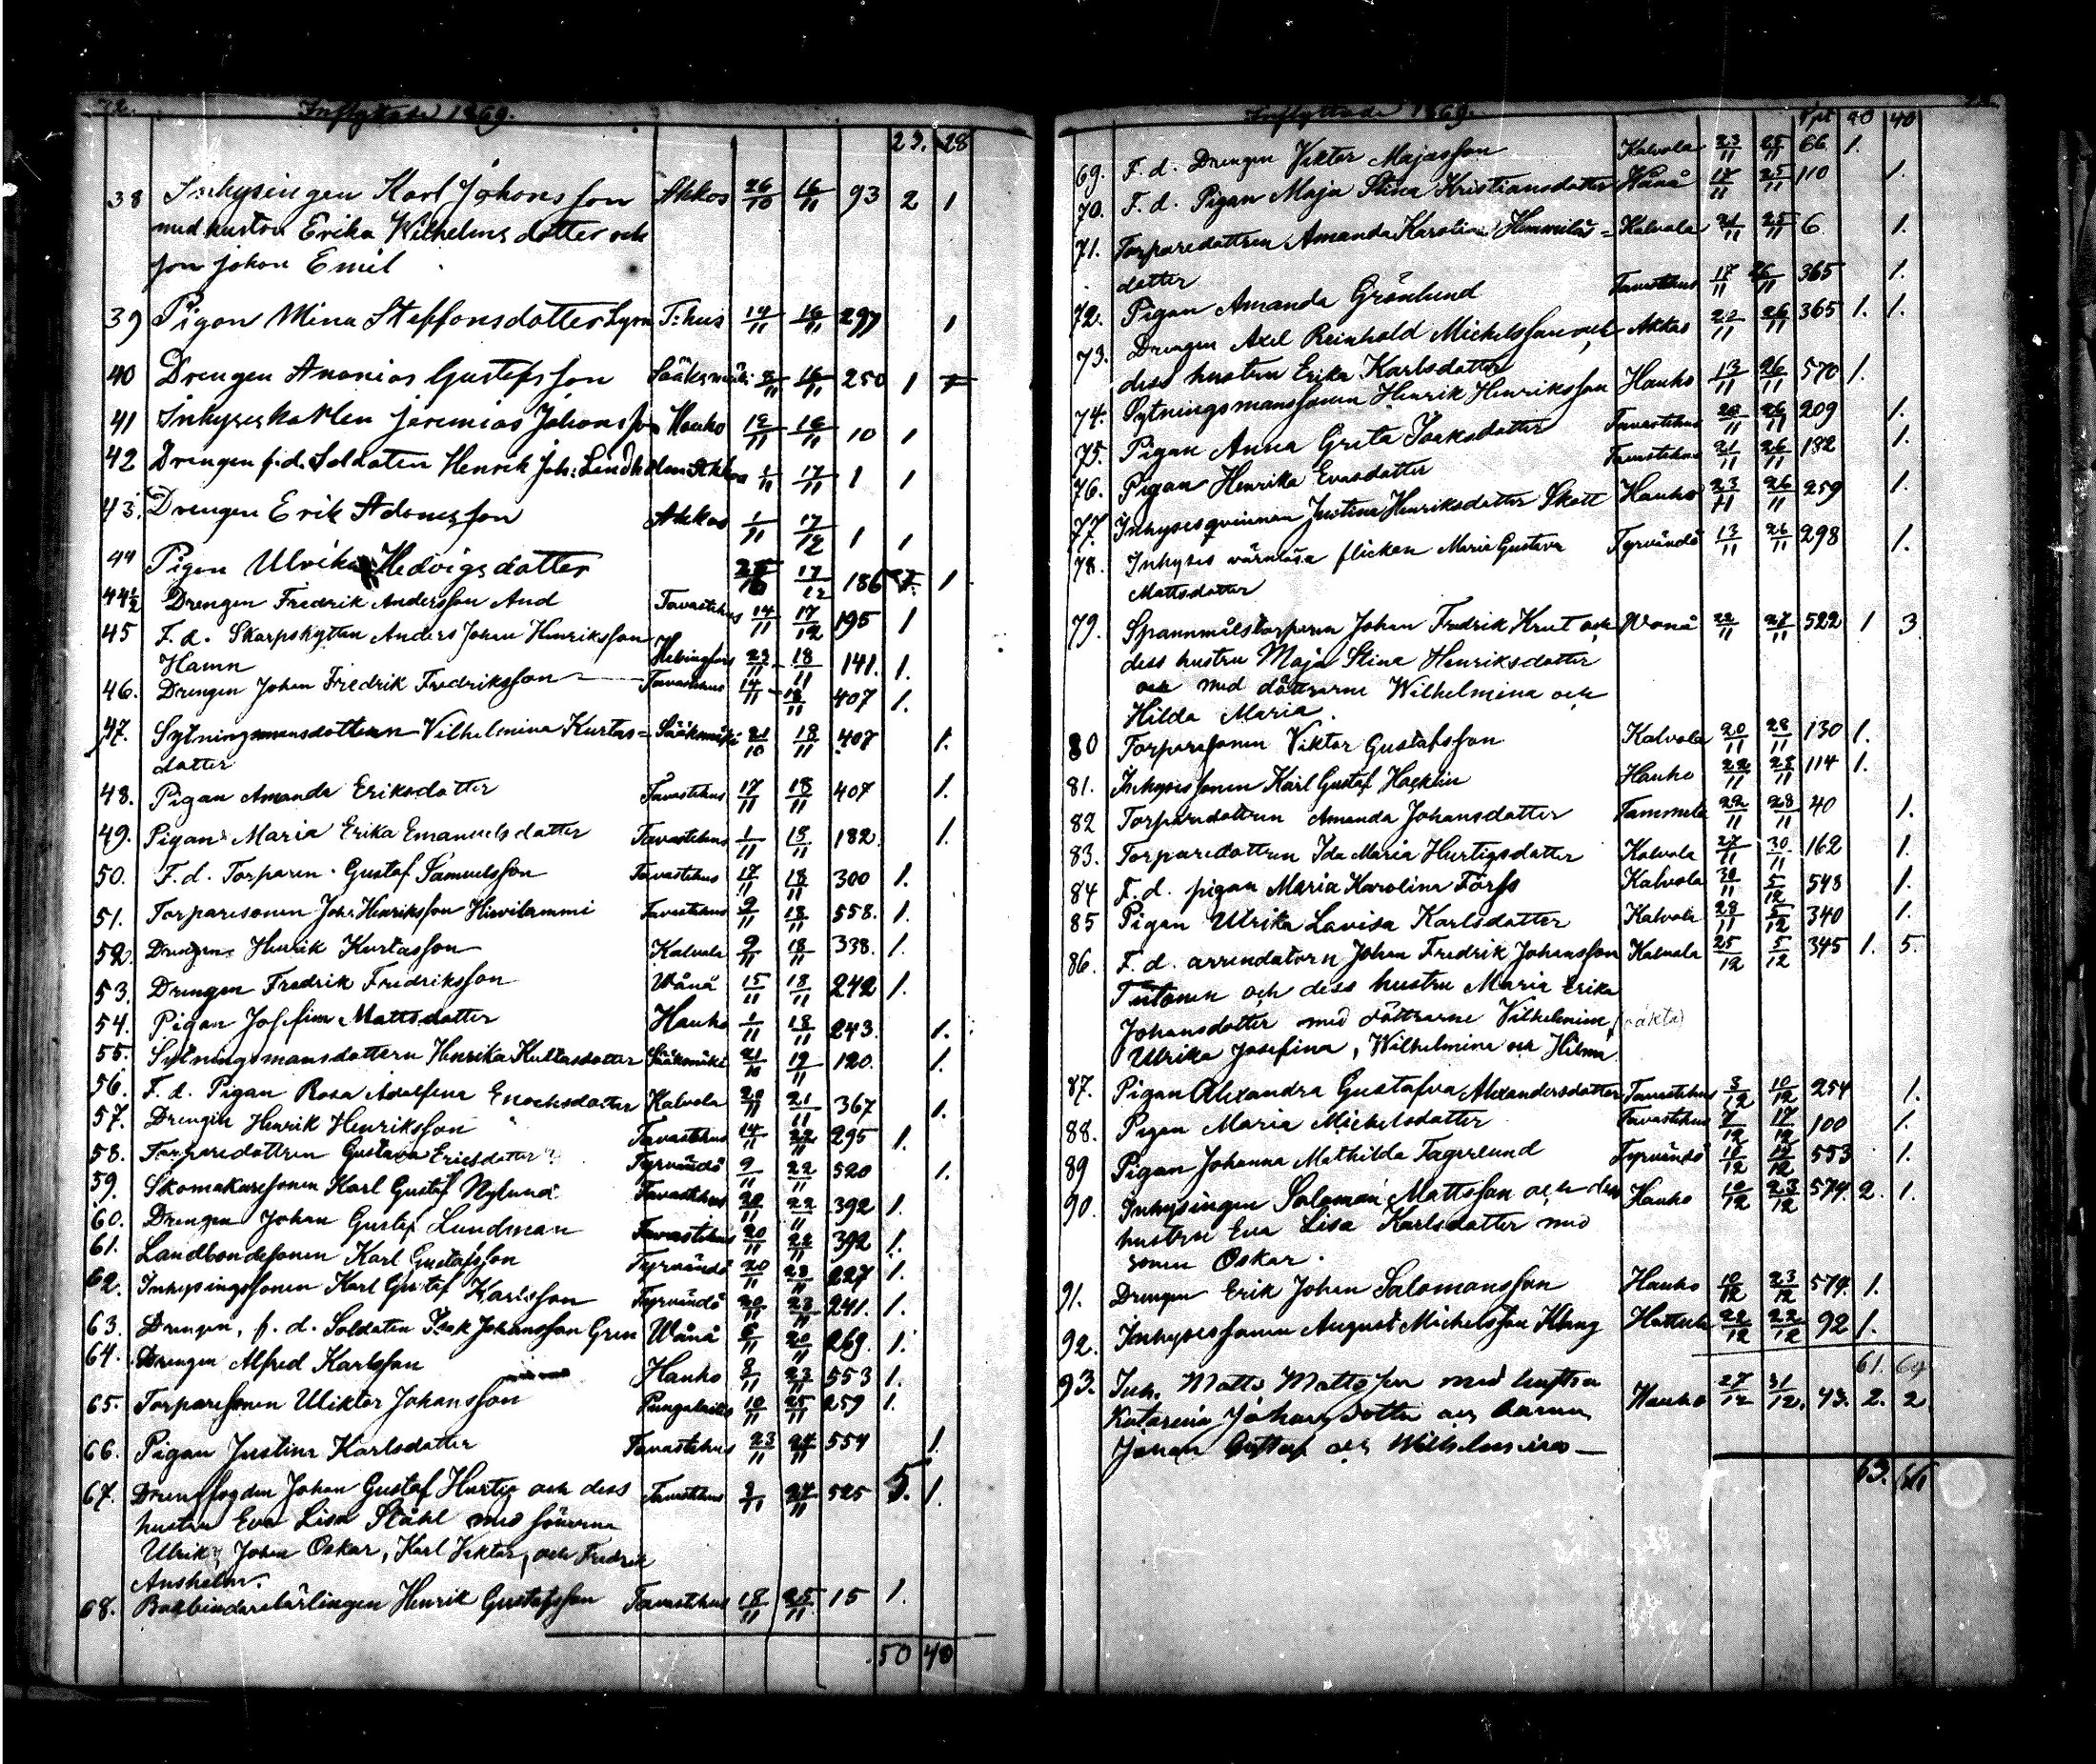 72. Inflyttade 1869.
23. 28
38 Inhysingen Karl Johansson Akkas 26/10 16/11 93 2 1
med hustru Erika Wilhelmsdotter och
son Johan Emil
39 Pigan Mina Staffansdotter T:hus 14/11 16/11 297 1
40 Drengen Ananias Gustafsson Sääksmäki 16/11 250 1
41 Inhyseskarlen Jeremias Johansson Hauho 12/11 16/11 10 1
42 Drengen f.d. Soldaten Henrik Joh: Lindholm Akkas 1/11 17/11 1 1
43. Drengen Erik Adamsson Akkas 1/11 17/12 1 1
44 Pigan Ulrika Hedvigsdotter 17/12 186 1
44½ Drengen Fredrik Andersson And Tavastehus 14/11 17/12 195 1
45 F.d. Skarpskytten Anders Johan Henriksson
Hamn Helsingfors 23/11 18/11 141. 1.
46. Drengen Johan Fredrik Fredriksson Tavastehus 14/11 18/11 407 1.
47. Sytningsmansdottern Vilhelmina Kustas= Sääksmäki 21/10 18/11 407 1.
dotter
48. Pigan Amanda Eriksdotter Tavastehus 17/11 18/11 407 1.
49. Pigan Maria Erika Emanuelsdotter Tavastehus 1/11 18/11 182. 1.
50. F.d. Torparen Gustaf Samuelsson Tavastehus 17/11 18/11 300 1.
51. Torparesonen Joh: Henriksson Hirvilammi Tavastehus 9/11 18/11 558. 1.
52. Drengen Henrik Kustasson Kalvola 9/11 18/11 338. 1.
53. Drengen Fredrik Fredriksson Wånå 15/11 18/11 242 1.
54. Pigan Josefina Mattsdotter Hauho 1/11 18/11 243. 1.
55. Sytningsmansdottern Henrika Kustasdotter Sääksmäki 21/10 19/11 120. 1.
56. F.d. Pigan Rosa Adolfina Enochsdotter Kalvola 20/11 21/11 367 1.
57. Drengen Henrik Henriksson Tavastehus 14/11 22/11 295 1.
58. Torparedottren Gustava Ericsdotter Tyrvändö 9/11 22/11 520 1.
59. Skomakaresonen Karl Gustaf Nylund Tavastehus 20/11 22/11 392 1.
60. Drengen Johan Gustaf Lundman Tavastehus 20/11 22/11 392 1.
61. Landbondesonen Karl Gustafsson Tyrvändö 20/11 23/11 227 1.
62. Inhysingssonen Karl Gustaf Karlsson Tyrvändö 20/11 23/11 241. 1.
63. Drengen, f.d. Soldaten Isak Johansson Gren Wånå 20/11 269. 1.
64. Drengen Alfred Karlsson Hauho 8/11 23/11 553 1.
65. Torparesonen Wiktor Johansson Pungalaitio 10/11 25/11 259 1.
66. Pigan Justina Karlsdotter Tavastehus 23/11 24/11 554 1.
67. Drengfogden Johan Gustaf Hurtig och dess Tavastehus 9/11 24/11 525 5. 1.
hustru Eva Lisa Ståhl med sönerna
Ulrik, Johan Oskar, Karl Viktor, och Fredrik
Anshelm.
68. Bokbindarelärlingen Henrik Gustafsson Tavastehus 18/11 25/11 15 1.
50 40
Inflyttade 1869.
40
69. F.d. Drengen Viktor Majasson Kalvola 23/11 25/11 66 1.
70. F.d. Pigan Maja Stina Kristiansdotter Wånå 17/11 25/11 110 1.
71. Torparedottren Amanda Karolina Himmilä= Kalvola 21/11 25/11 6 1.
dotter
72. Pigan Amanda Grönlund Tavastehus 17/11 26/11 365 1.
73. Drengen Axel Reinhold Mickelsson och Akkas 22/11 26/11 365 1. 1.
dess hustru Erika Karlsdotter
74. Sytningsmanssonen Henrik Henriksson Hauho 13/11 26/11 570 1.
75. Pigan Anna Greta Isaksdotter Tavastehus 20/11 26/11 209 1.
76. Pigan Henrika Evasdotter Tavastehus 21/11 26/11 182 1.
77. Inhysesqvinnan Justina Henriksdotter Skott Hauho 23/11 26/11 259 1.
78. Inhyses värnlösa flickan Maria Gustava Tyrvändö 13/11 26/11 298 1.
Mattsdotter
79. Spannmålstorparen Johan Fredrik Krut och Wånå 22/11 27/11 522 1 3
dess hustru Maja Stina Henriksdotter
och med döttrarne Wilhelmina och
Hilda Maria.
80 Torparesonen Viktor Gustafsson Kalvola 20/11 28/11 130 1.
81. Inhysessonen Karl Gustaf Hacklin Hauho 22/11 28/11 114 1.
82 Torparedottren Amanda Johansdotter Tammela 22/11 28/11 40 1.
83. Torparedottren Ida Maria Hurtigsdotter Kalvola 27/11 30/11 162 1.
84 F.d. pigan Maria Karolina Förfs Kalvola 30/11 5/12 548 1.
85 Pigan Ulrika Lavisa Karlsdotter Kalvola 28/11 5/12 340 1.
86. F.d. arrendatorn Johan Fredrik Johansson Kalvola 25/12 5/12 345 1. 5.
Tutonen och dess hustru Maria Erika
Johansdotter med döttrarne Vilhelmina, (oäkta)
Ulrika Josefina, Wilhelmina och Hilma
87. Pigan Alexandra Gustafva Alexandersdotter Tavastehus 3/12 10/12 254 1.
88. Pigan Maria Mickelsdotter Tavastehus 7/12 17/12 100 1.
89 Pigan Johanna Mathilda Fagerlund Tyrvändö 18/12 19/12 553 1.
90. Inhysingen Salomon Mattsson och dess Hauho 10/12 23/12 574. 2. 1.
hustru Eva Lisa Karlsdotter med
sonen Oskar.
91. Drengen Erik Johan Salomonsson Hauho 10/12 23/12 574. 1.
92. Inhysessonen August Michelsson Kling Hattula 22/12 22/12 92 1.
61. 64
93. Inh. Matts Mattsson med hustru Hauho 27/12 31/12. 43. 2. 2
Katarina Johansdotter och barnen
Johan Gustaf och Wilhelmina —
63. 66